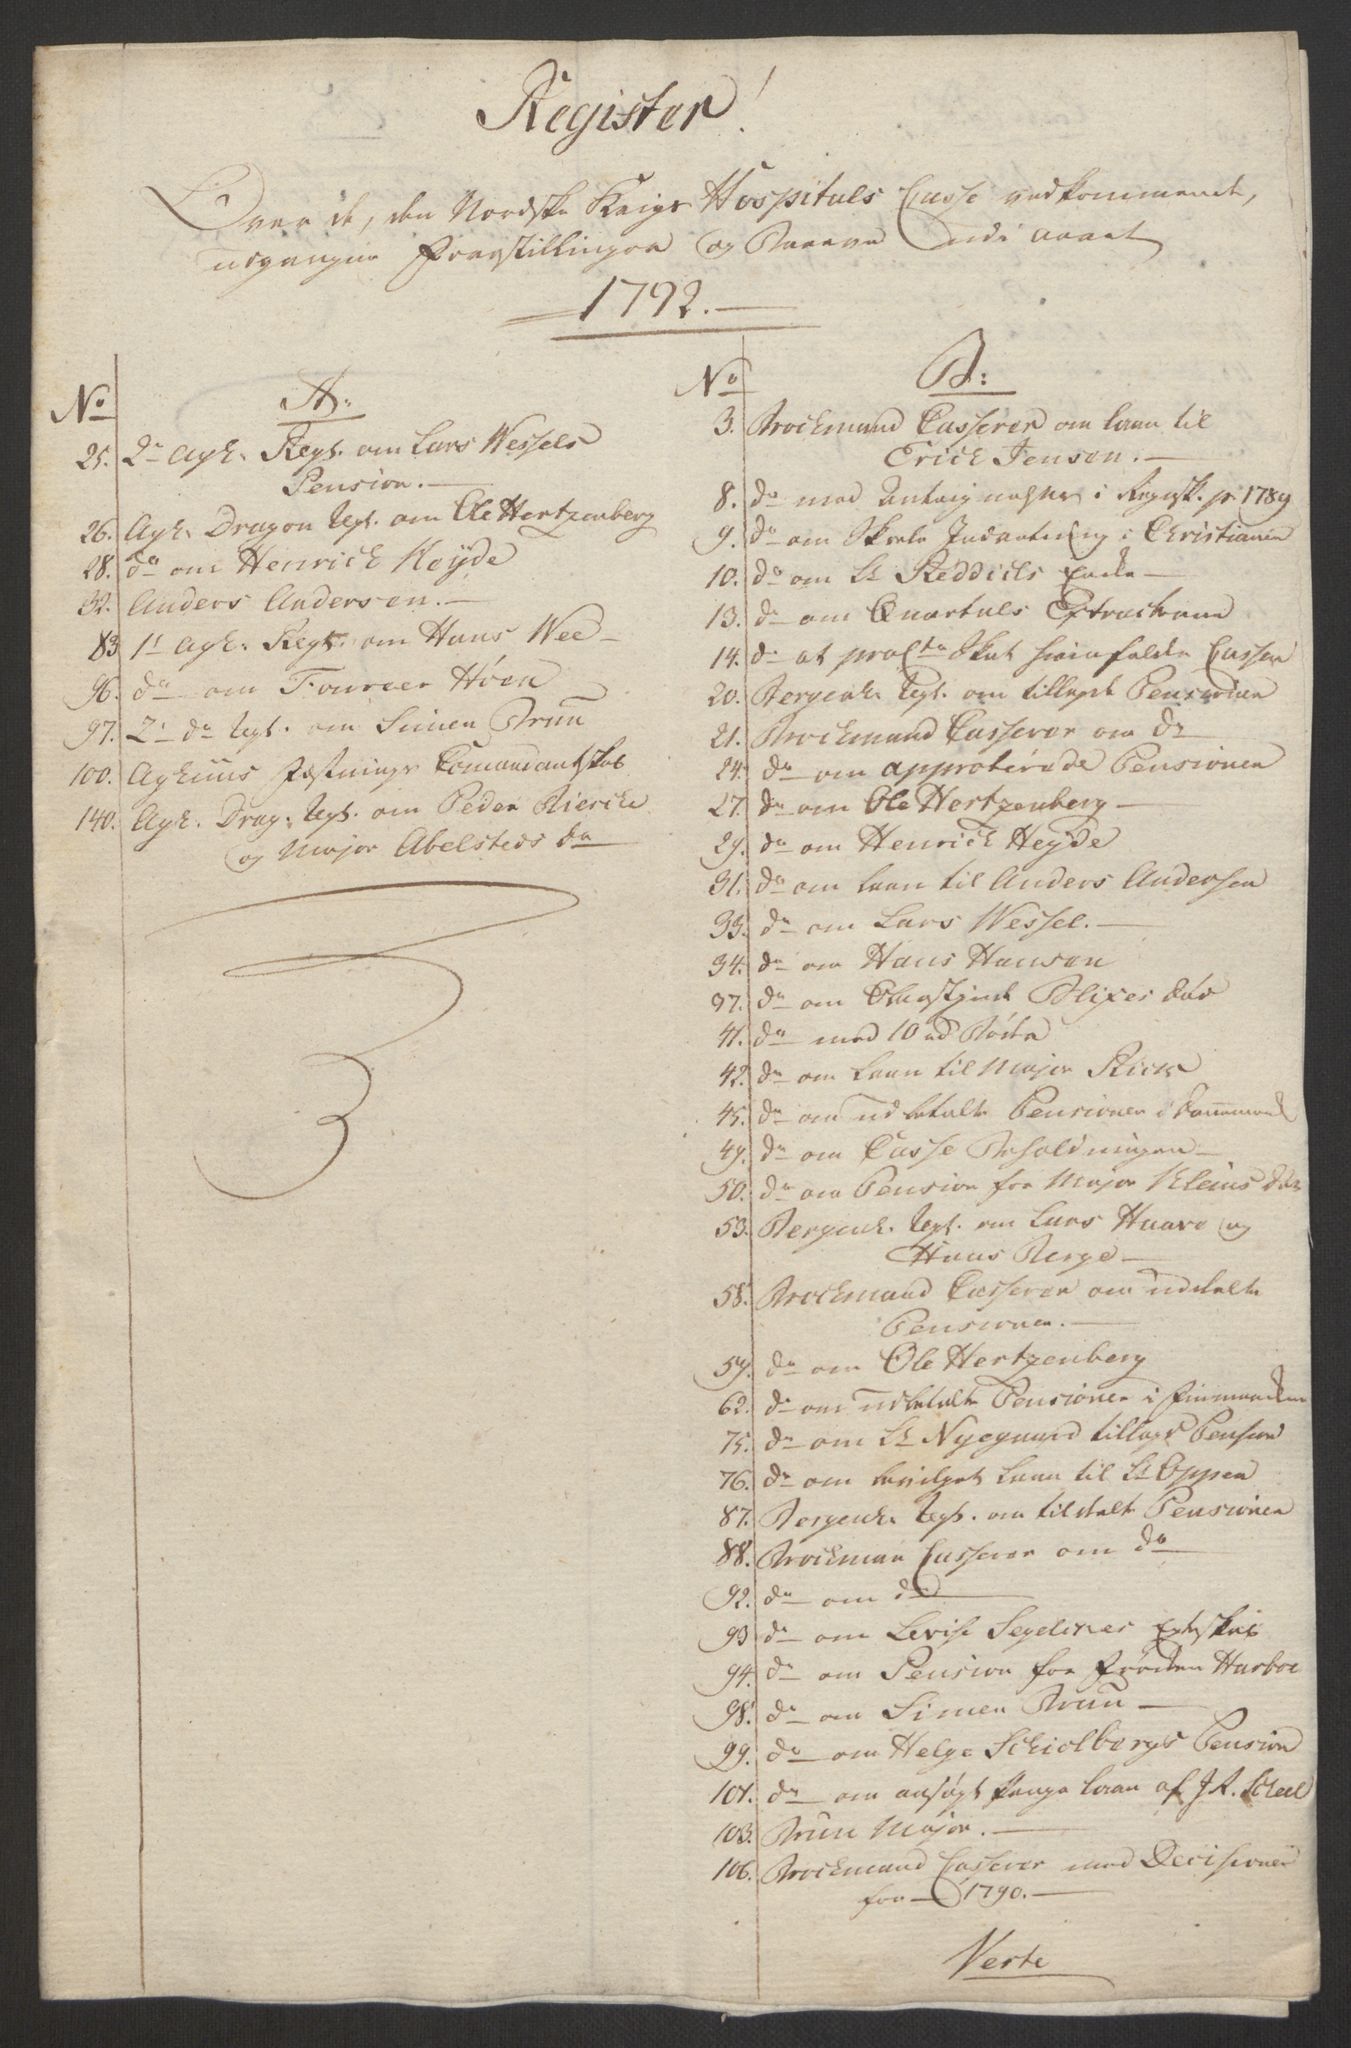 Register!
Over de, den Nordske Krigs Hospitals Casse vedkommende,
udgangne Forestillinger og Breeve udi aaret
1792.
No
A:
25. 2de Agh. Regt. om Lars Wessels
Pension.
26. Agh. Dragon Regt. om Ole Hertzenberg
28. do om Henrich Heÿde
32. Anders Andersen.
83 1t Agh. Regt. om Hans Wee
96. do om Foureer Höen
97. 2t do Regt. om Simen Brun
100. Aghuus Fæstnings Comandantskab
140. Agh. Drag. Regt. om Peder Bierche
og Major Abelsteds do
No
B:
3. Brochmand Casserer om laan til
Erich Jensen.
8. do med i Regnsk. p 1789
9. do om Skole Indretning i Christiania
10. do om Lt Reddiels Enke
13. do om Quartals Extracterne
14. do at Skat Cassen
20. Bergenh. Regt. om tillagde Pensioner
21. Brochmand Casserer om do
24. do om approberede Pensioner
27. do om Ole Hertzenberg
29. do om Henrich Heÿde
31. do om laan til Anders Andersen
33. do om Lars Wessel.
34. do om Hans Hansen
37. do om Blixes
41. do med 10 ud
42. do om laan til Major Rick
45. do om udbetalte Pensioner i Dannemark
49. do om Casse Beholdningen
50. do om Pension for Major Kleins
53. Bergenh. Regt. om Lars Haave og
Hans Berge
58. Brochmand Casserer om uddelte
Pensioner.
59. do om Ole Hertzenberg
62. do om udbetalte Pensioner i Finmarken
75. do om Lt Nyegaard tillagt Pension
76. do om bevilget laan til Lt Oppen
87. Bergenh. Regt. om tildelte Pensioner
88. Brochman Casserer om do
92. do om do
93 do om Levise Segelckes Egteskab
94. do om Pension for Frøcken Harboe
98. do om Simen Brun
99. do om Helge Schiolborgs Pension
101. do om ansøgt Penge laan af J. R. Scheel
103. Brun Major.
106. Brochmand Casserer med Decisioner
for 1790.
Verte